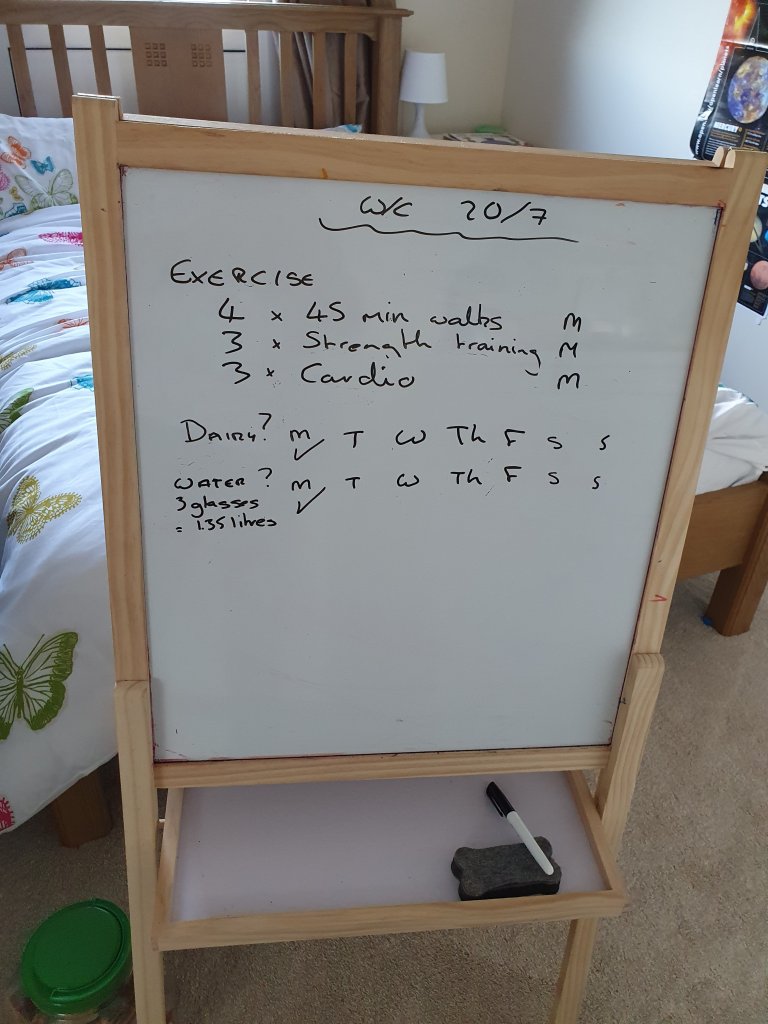 W/C 20/7
EXERCISE
4 x 45 min walks M
3 x Strength training M
3 x Cardio M
DAIRY? M ✓ T W Th F S S
WATER? M ✓ T W Th F S S
3 glasses
= 1.35 litres
MERCURY